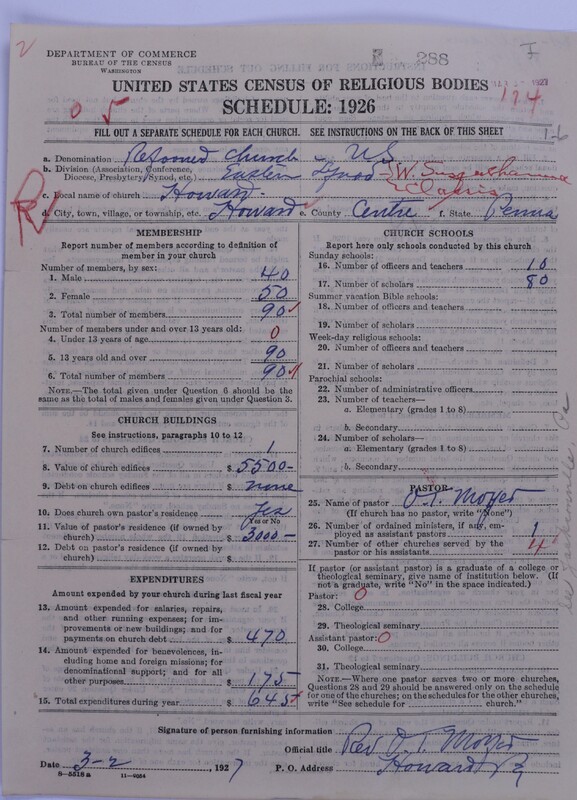 DEPARTMENT OF COMMERCE
BUREAU OF THE CENSUS
WASHINGTON
288
UNITED STATES CENSUS OF RELIGIOUS BODIES
SCHEDULE: 1926
05
174
FILL OUT A SEPARATE SCHEDULE FOR EACH CHURCH. SEE INSTRUCTIONS ON THE BACK OF THIS SHEET
1-6
a. Denomination Reformed Church in US
b. Division (Association, Conference, Diocese, Presbytery, Synod, etc.) Eastern Synod - W. Susquehanna Classis
c. Local name of church Howard
d. City, town, village, or township, etc. Howard e. County Centre f. State Penna
MEMBERSHIP
Report number of members according to definition of
member in your church
Number of members, by sex:
1. Male 40
2. Female 50
3. Total number of members 90
Number of members under and over 13 years old:
4. Under 13 years of age 0
5. 13 years old and over 90
6. Total number of members 90
NOTE.—The total given under Question 6 should be
the same as the total of males and females given under Question 3.
CHURCH BUILDINGS
See instructions, paragraphs 10 to 12
7. Number of church edifices 1
8. Value of church edifices $ 5500-
9. Debt on church edifices $ none
10. Does church own pastor's residence Yes
(Yes or No)
11. Value of pastor's residence (if owned by
church) $ 3000-
12. Debt on pastor's residence (if owned by
church) $
EXPENDITURES
Amount expended by your church during last fiscal year
13. Amount expended for salaries, repairs,
and other running expenses; for im-
provements or new buildings; and for
payments on church debt $ 470
14. Amount expended for benevolences, in-
cluding home and foreign missions; for
denominational support; and for all
other purposes $ 175
15. Total expenditures during year $ 645
CHURCH SCHOOLS
Report here only schools conducted by this church
Sunday schools:
16. Number of officers and teachers 10
17. Number of scholars 80
Summer vacation Bible schools:
18. Number of officers and teachers
19. Number of scholars
Week-day religious schools:
20. Number of officers and teachers
21. Number of scholars
Parochial schools:
22. Number of administrative officers
23. Number of teachers—
a. Elementary (grades 1 to 8)
b. Secondary
24. Number of scholars—
a. Elementary (grades 1 to 8)
b. Secondary
PASTOR
25. Name of pastor O. T. Moyer
(If church has no pastor, write "None")
26. Number of ordained ministers, if any, em-
ployed as assistant pastors 1
27. Number of other churches served by the
pastor or his assistants 4
If pastor (or assistant pastor) is a graduate of a college or
theological seminary, give name of institution below. (If
not a graduate, write "No" in the space indicated.)
Pastor: 0
28. College
29. Theological seminary
Assistant pastor: 0
30. College
31. Theological seminary
NOTE.—Where one pastor serves two or more churches,
Questions 28 and 29 should be answered only on the schedule
for one of the churches; on the schedules for the other churches,
write "See schedule for church."
Signature of person furnishing information
Official title Rev O. T. Moyer
Date 3-2, 1927 P. O. Address Howard Pa
8-5518 a 11-9254